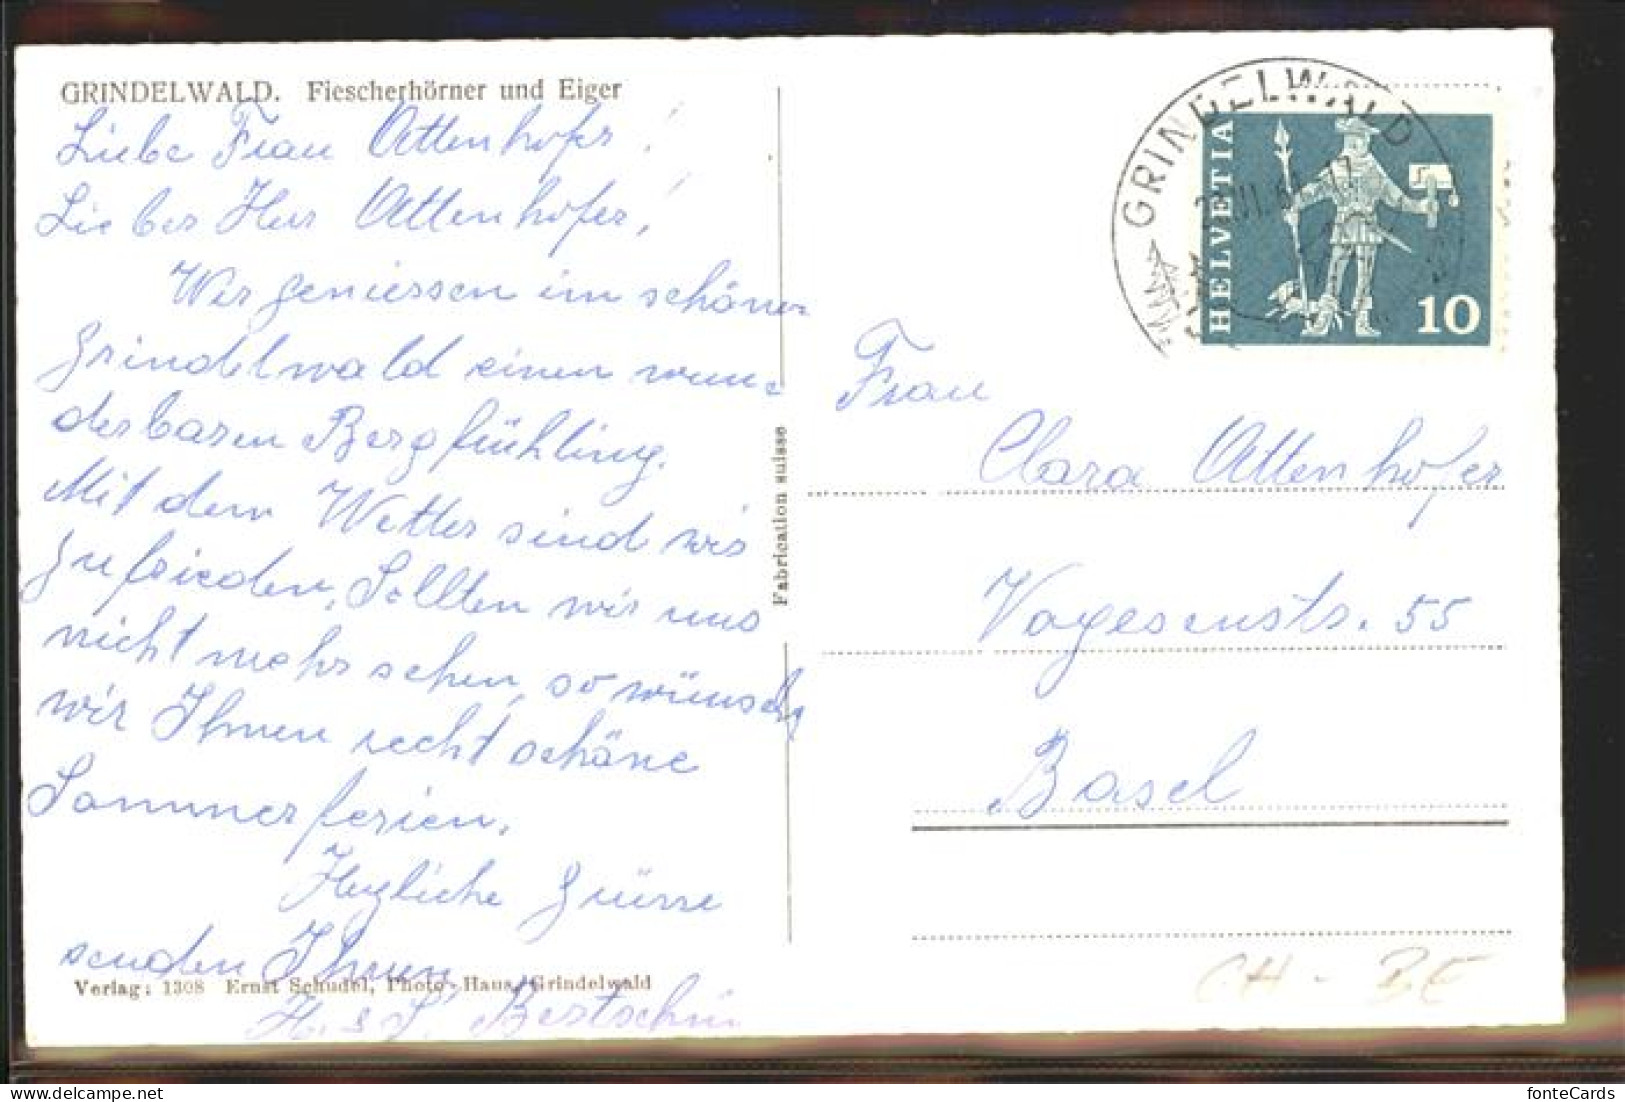 GRINDELWALD. Fiescherhörner und Eiger
Liebe Frau Attenhofer!
Lieber Herr Attenhofer!
Wir geniessen im schönen
Grindelwald einen wun-
derbaren Bergfrühling.
Mit dem Wetter sind wir
zufrieden. Sollten wir uns
nicht mehr sehen, so wünschen
wir Ihnen recht schöne
Sommerferien.
Herzliche Grüsse
senden Ihnen
H. & L. Bertschin
Verlag: 1308 Ernst Schudel, Photo-Haus, Grindelwald
Fabrication suisse
GRINDELWALD
HELVETIA
10
Frau
Clara Attenhofer
Vogesenstr. 55
Basel
CH - BE
fonteCards